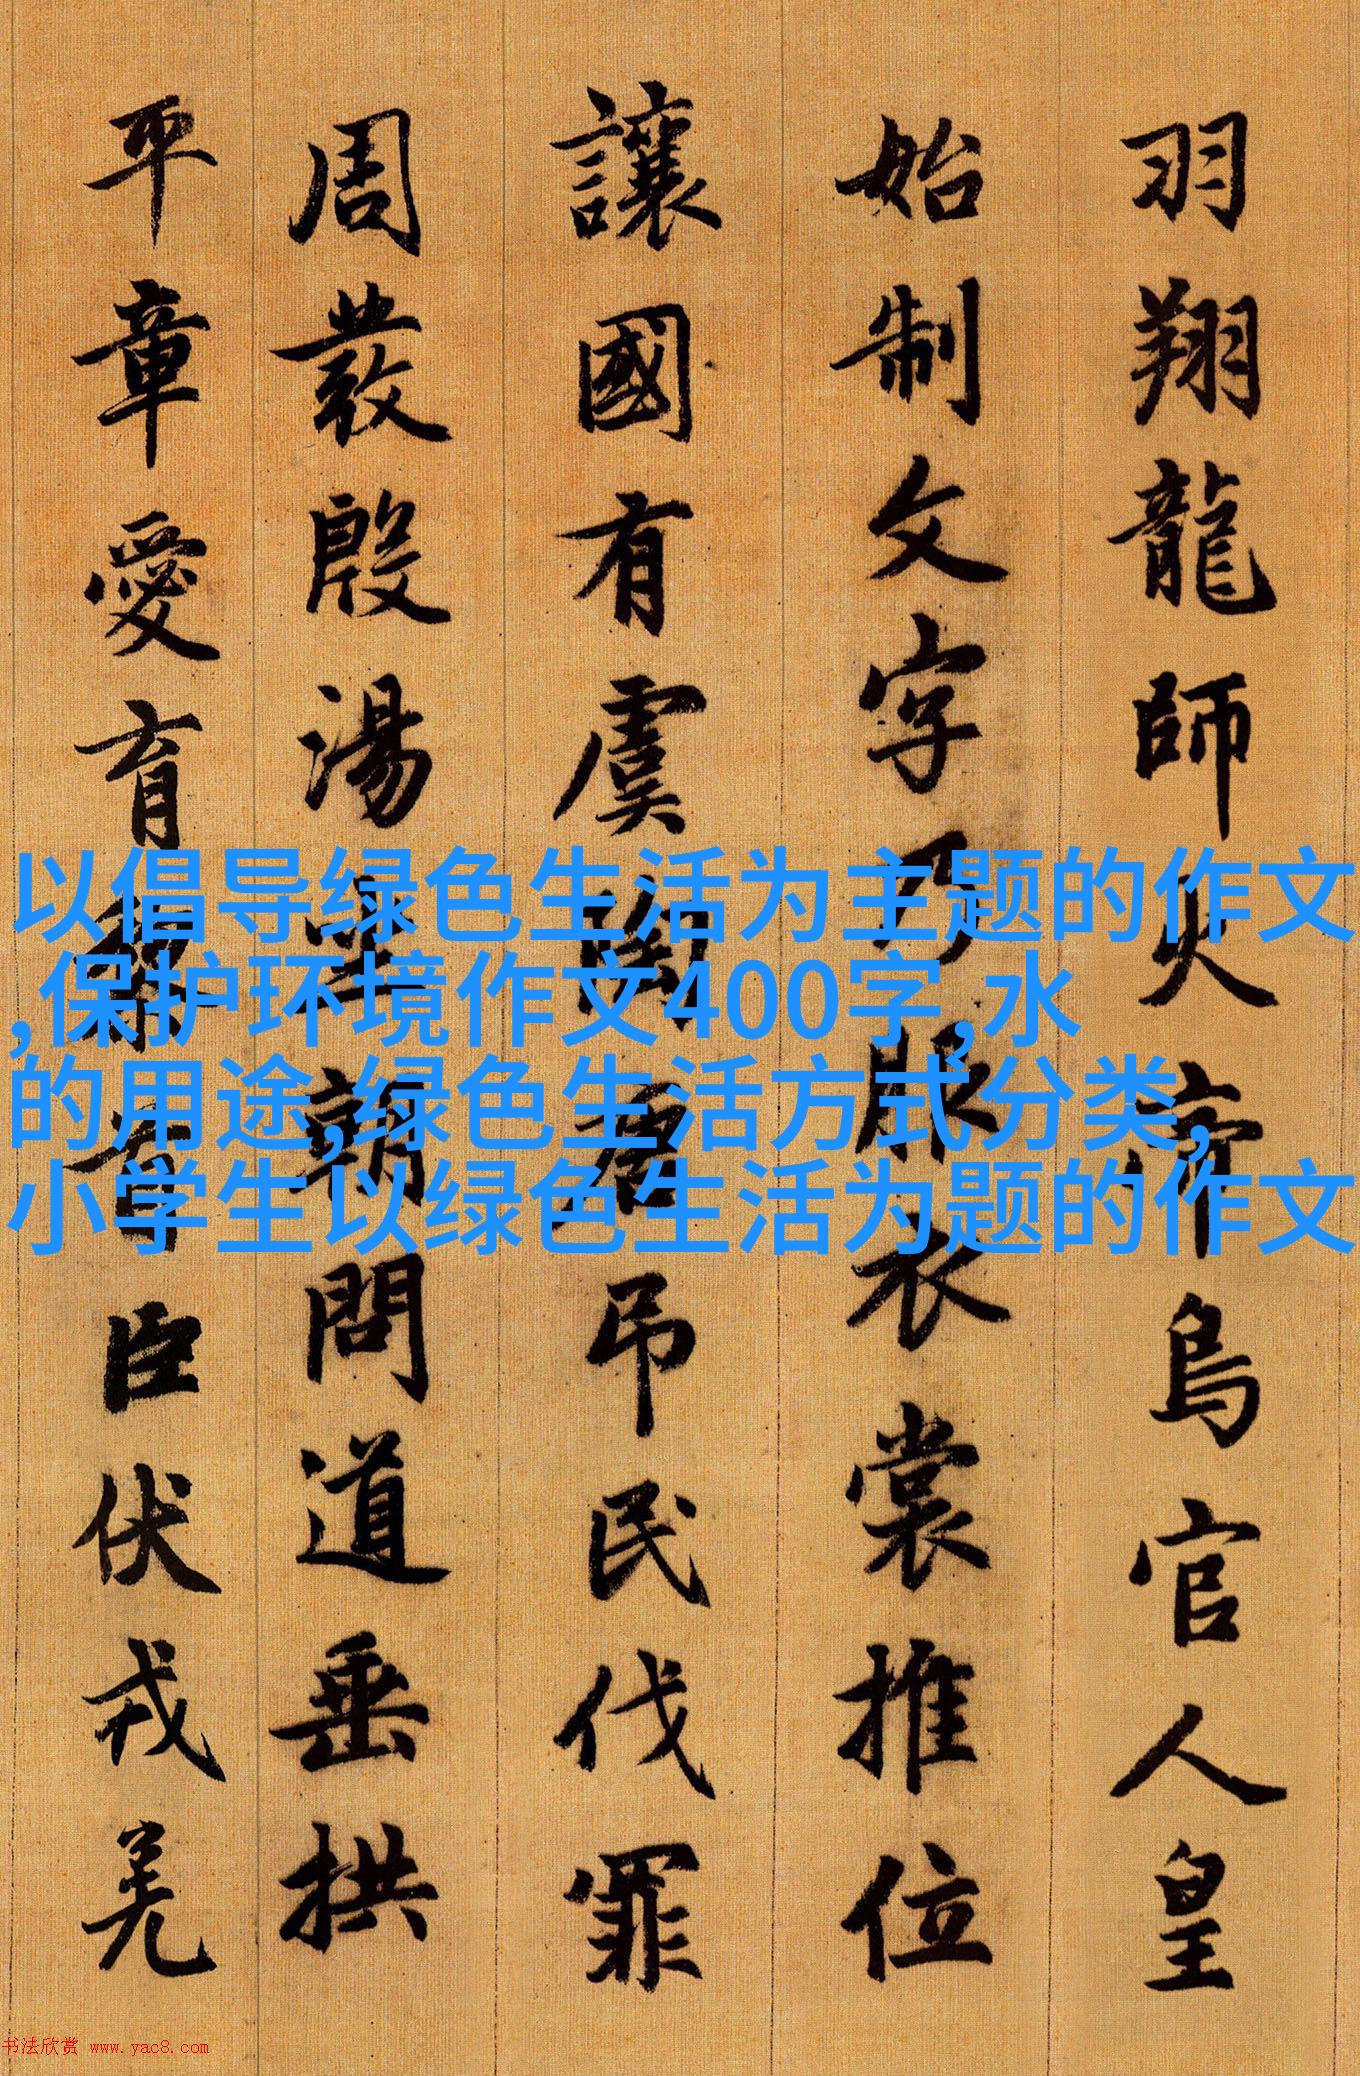 羽翔龍師火帝鳥官人皇
始制文字乃服衣裳推位
讓國有虞陶唐吊民伐罪
周發殷湯坐朝問道垂拱
平章愛育黎首臣伏戎羌
以倡导绿色生活为主题的作文
,保护环境作文400字,水
的用途,绿色生活方式分类,
小学生以绿色生活为题的作文
书法欣赏 www.yac8.com